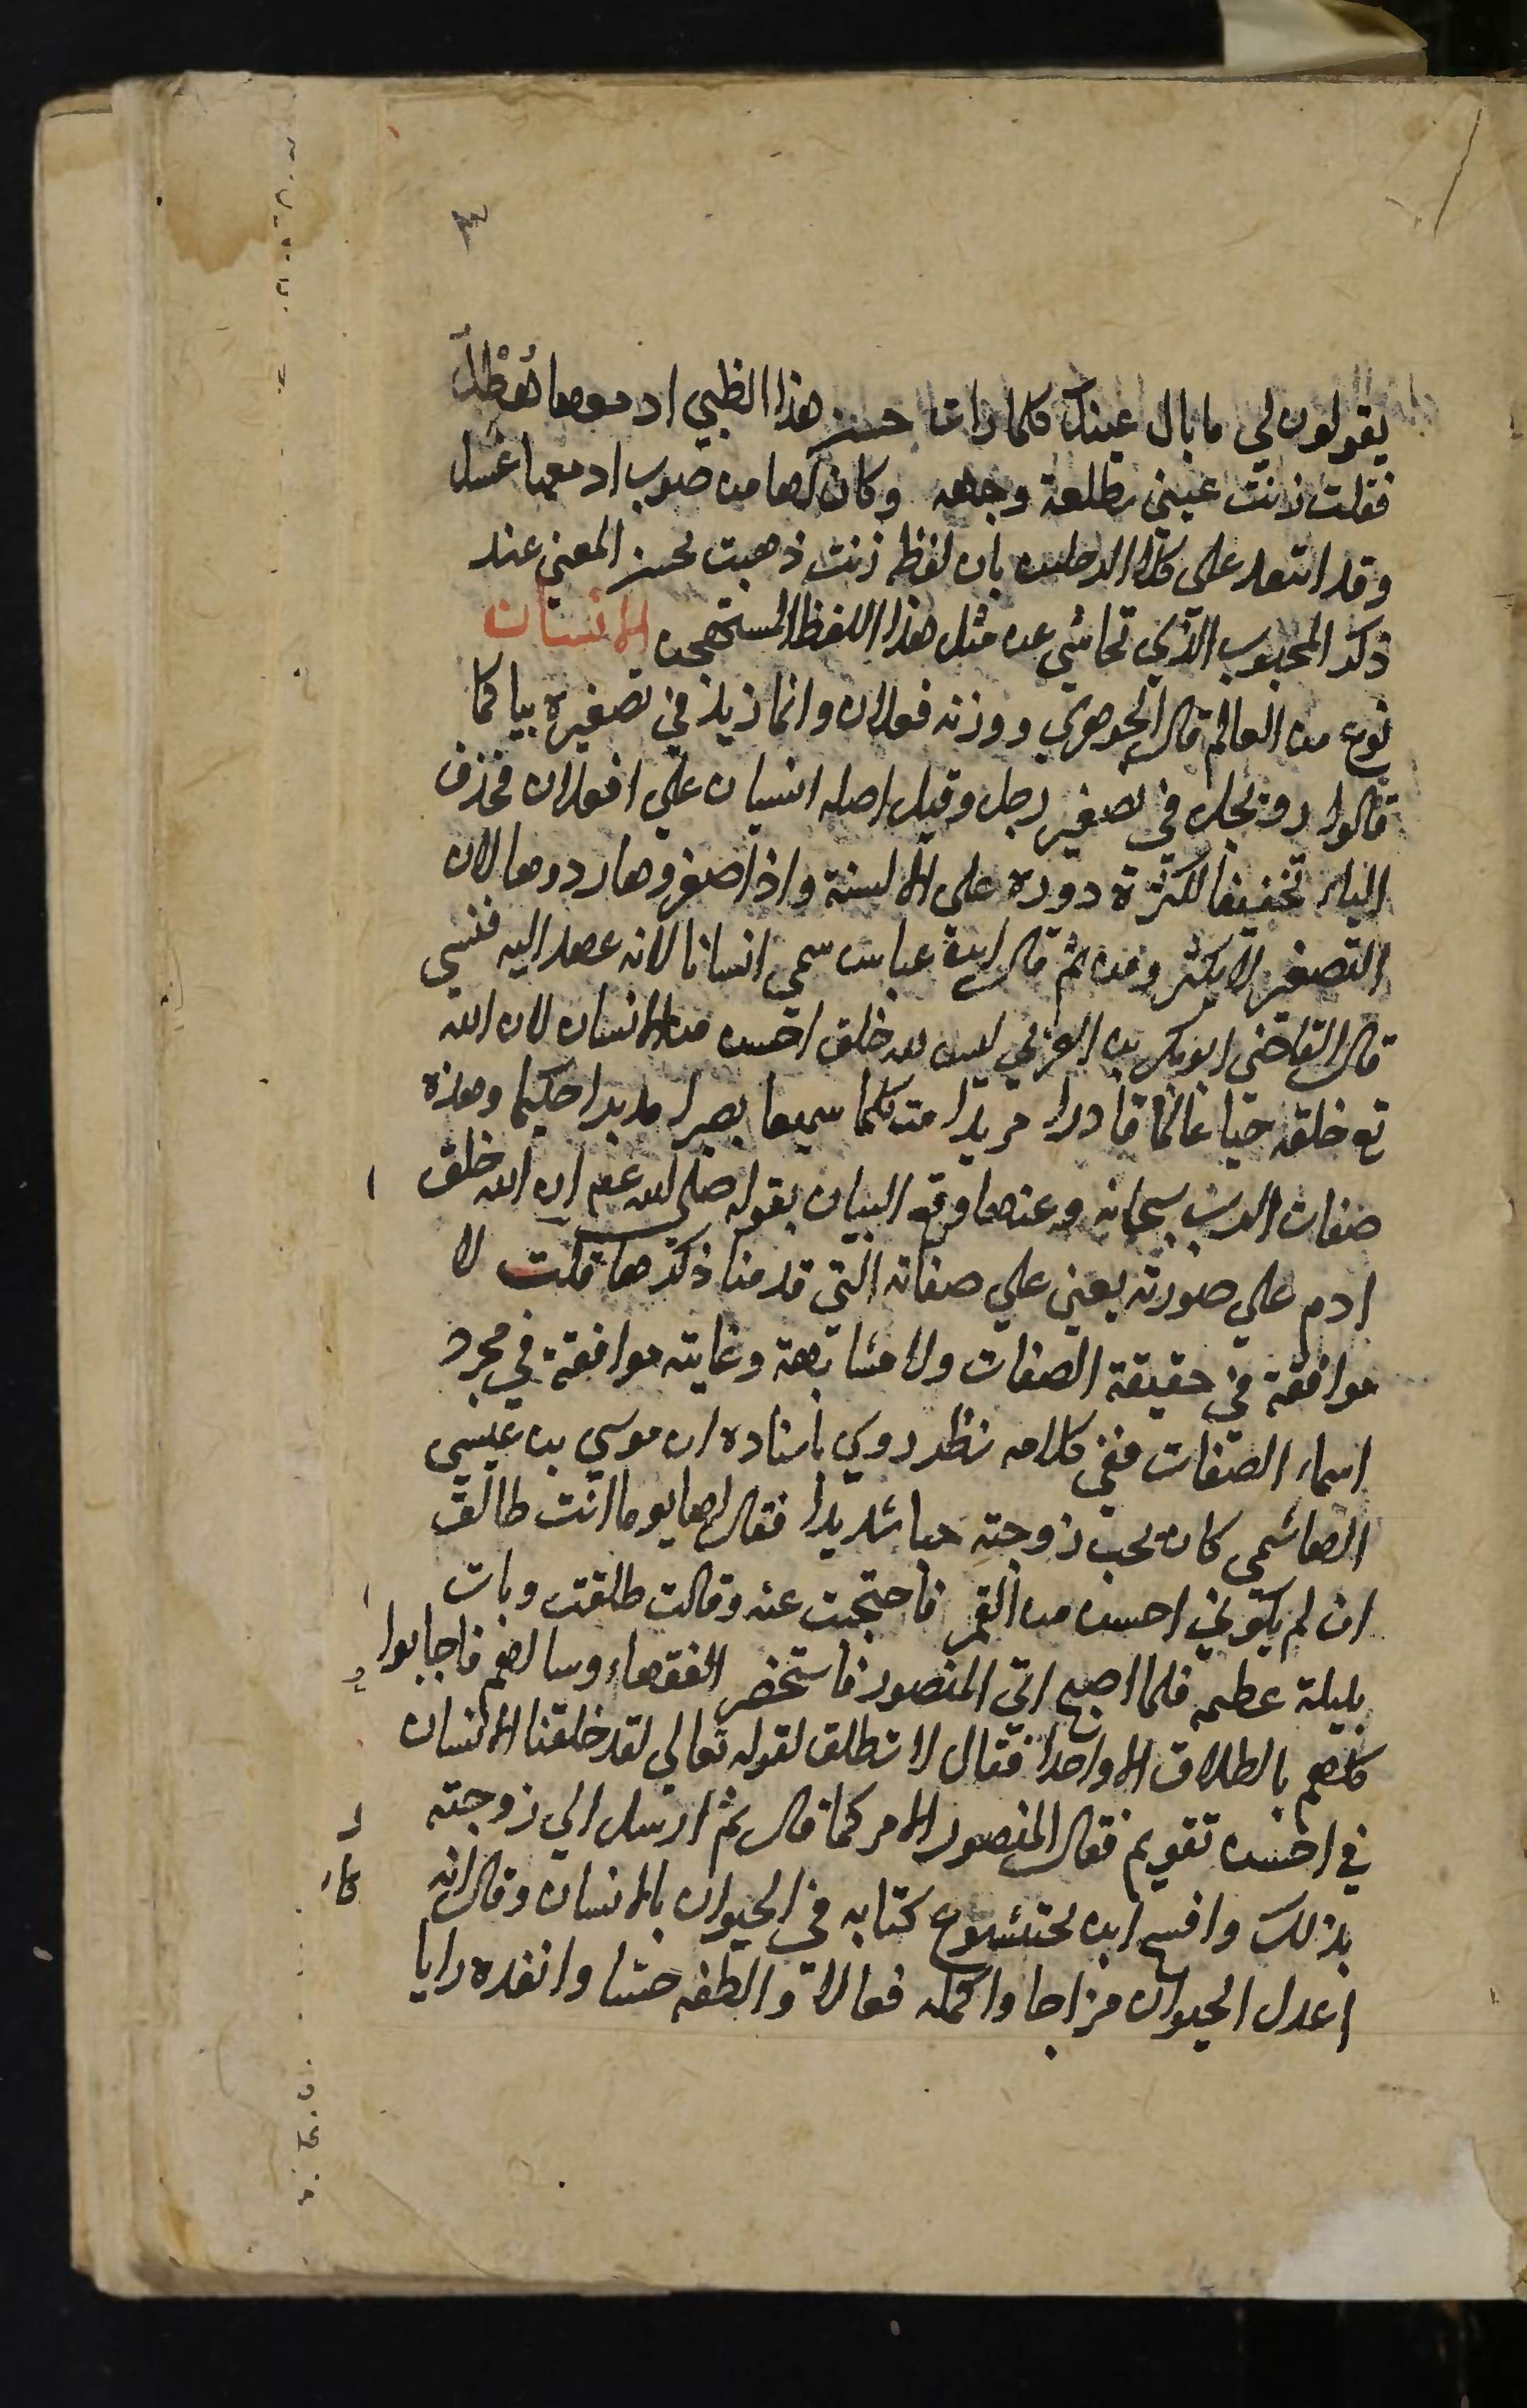 ٣
يقولون لي ما بال عينك كلما رات حسن هذا الظبي ادمعها هُطْلُ
فقلت زنت عيني بطلعة وجهه وكان لها من صوب ادمعها غسل
وقد انتقد على كلا الرجلين بان لفظه زنت ذهبت بحسن المعنى عند
ذكر المحبوب الذي تحاشي عن مثل هذا اللفظ المستهجن الانسان
نوع من العالم قال الجوهري ووزنه فعلان وانما زيد في تصغيره يا كما
قالوا رويجل في تصغير رجل وقيل اصله انسيان علي افعلان فحذف
الياء تخفيفا لكثرة دوره علي الالسنة واذا صغروها ردوها لان
التصغير لا يكثر ومن ثم قال ابن عباس سمي انسانا لانه عهد اليه فنسي
قال القاضي ابو بكر بن العربي ليس لله خلق احسن من الانسان لان الله
تع خلقه حيا عالما قادرا مريدا متكلما سميعا بصيرا مدبرا حكيما وهذه
صفات الرب سبحانه وعنها وقع البيان بقوله صلى الله عم ان الله خلق
ادم علي صورته يعني علي صفاته التي قدمنا ذكرها قلت لا
موافقة في حقيقة الصفات ولا مشابهة وغايته موافقة في مجرد
اسماء الصفات ففي كلامه نظر روي باسناده ان موسي بن عيسي
الهاشمي كان يحب زوجته حبا شديدا فقال لها يوما انت طالق
ان لم تكوني احسن من القمر فاحتجبت عنه وقالت طلقت وبات
بليلة عظيمه فلما اصبح اتي المنصور فاستحضر الفقهاء وسالهم فاجابوا
كلهم بالطلاق الا واحدا فقال لا تطلق لقوله تعالي لقد خلقنا الانسان
في احسن تقويم فقال المنصور الامر كما قال ثم ارسل الي زوجته
بذلك وافتتح ابن بختيشوع كتابه في الحيوان بالانسان وقال انه
اعدل الحيوان مزاجا واكمله فعالا والطفه حسا وانفده رايا